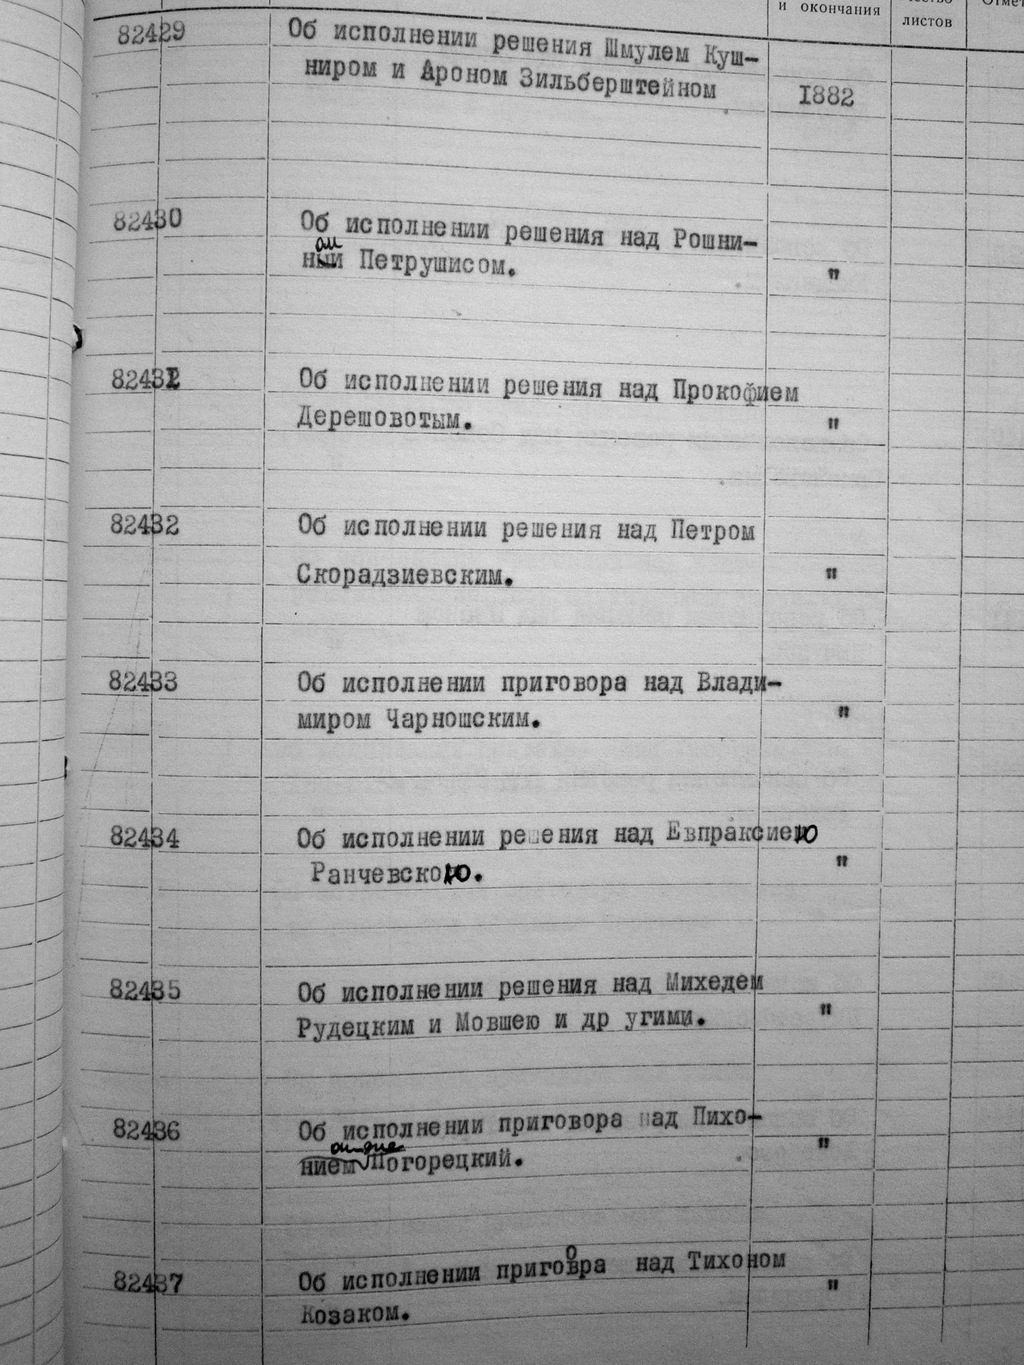 и окончания
листов
82429 Об исполнении решения Шмулем Куш-
ниром и Ароном Зильберштейном 1882
82430 Об исполнении решения над Рошни-
ный Петрушисом. "
82431 Об исполнении решения над Прокофием
Дерешоватым. "
82432 Об исполнении решения над Петром
Скорадзиевским. "
82433 Об исполнении приговора над Влади-
миром Чарношским. "
82434 Об исполнении решения над Евпраксиею
Ранчевскою. "
82435 Об исполнении решения над Михедем
Рудецким и Мовшею и др угими. "
82436 Об исполнении приговора над Пихо-
нием Погорецкий. "
82437 Об исполнении приговра над Тихоном
Козаком. "